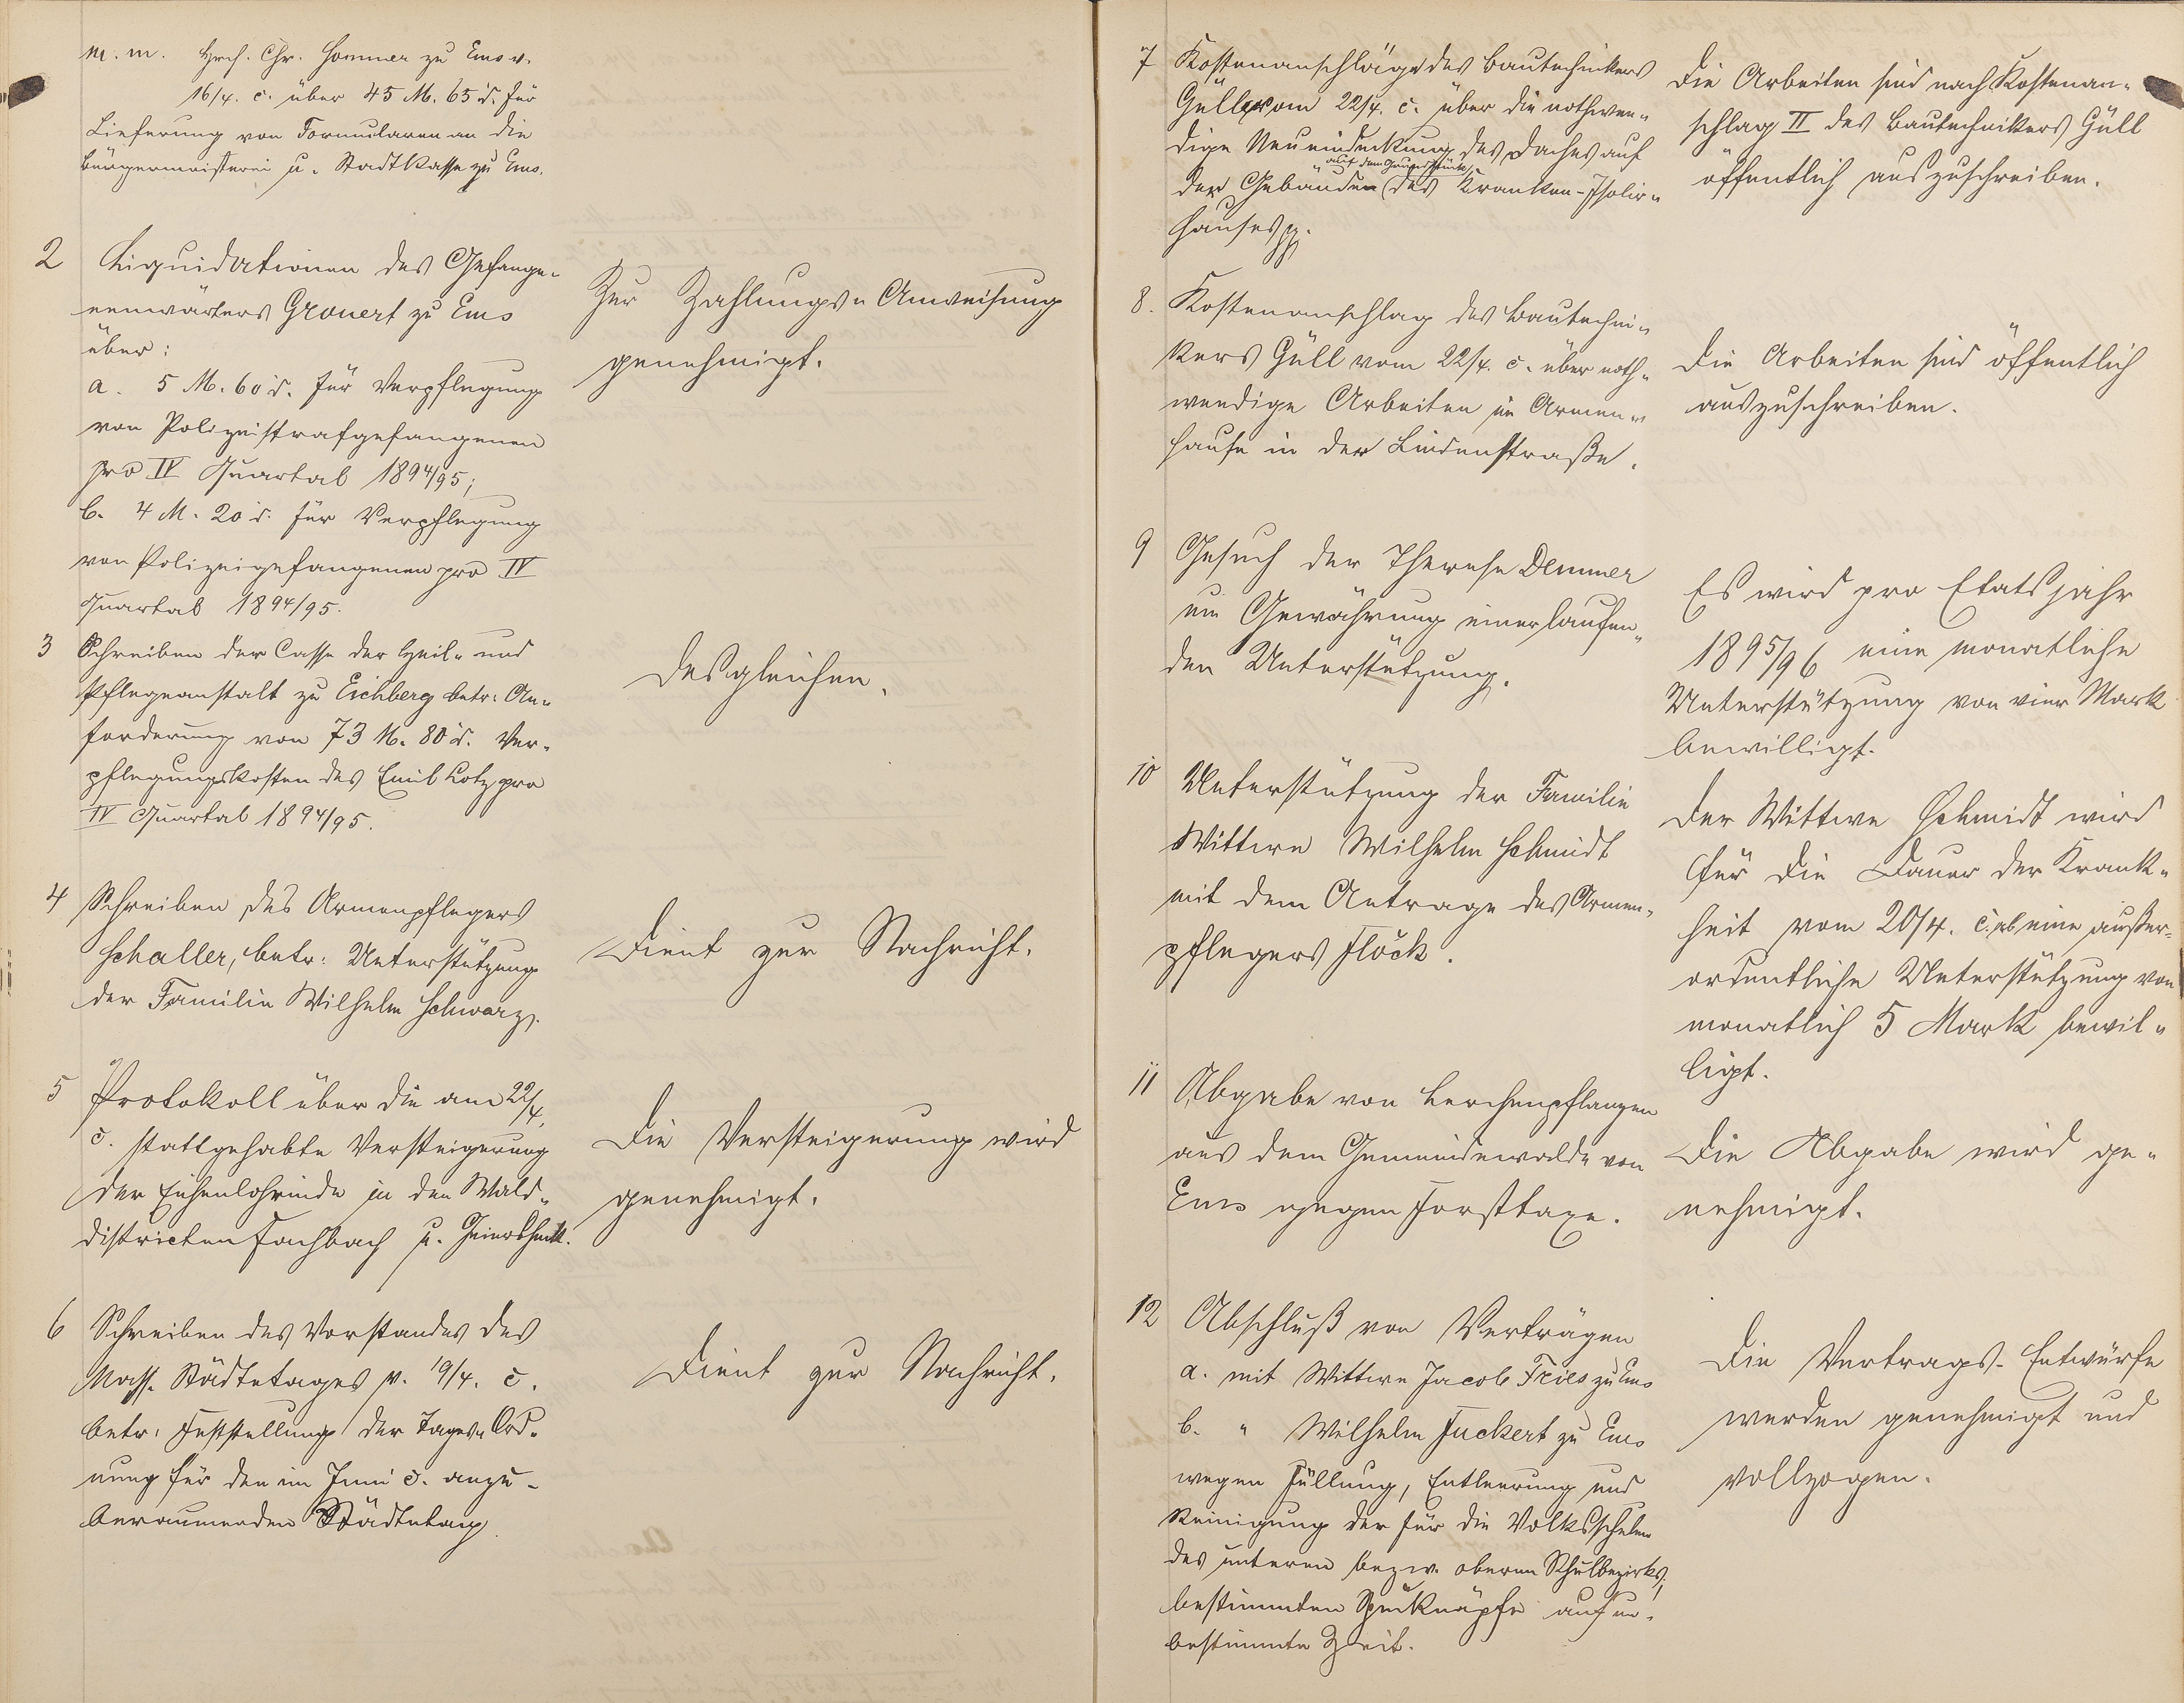 m. m. Hrch. Chr. Sommer zu Ems v.
16/4. c. über 45 M. 65 d. für
Lieferung von Formularen an die
Bürgermeisterei u. Stadtkasse zu Ems.
2 Liquidationen des Gefange-
nenwärters Grouert zu Ems
über:
a. 5 M. 60 d. für Verpflegung
von Polizeistrafgefangenen
pro IV Quartal 1894/95;
b. 4 M. 20 d. für Verpflegung
von Polizeigefangenen pro IV
Quartal 1894/95.
Zur Zahlungs- Anweisung
genehmigt.
3 Schreiben der Casse der Heil- und
Pflegeanstalt zu Eichberg betr: An-
forderung von 73 M. 80 d. Ver-
pflegungskosten des Emil Lotz pro
IV Quartal 1894/95.
Desgleichen.
4 Schreiben des Armenpflegers
Schaller, betr: Unterstützung
der Familie Wilhelm Schwarz.
Dient zur Nachricht.
5 Protokoll über die am 22/4.
c. stattgehabte Versteigerung
der Eichenlohrinde in den Wald-
districten Fachbach u.
Die Versteigerung wird
genehmigt.
6 Schreiben des Vorstandes des
Nass. Städtetages v. 19/4. c.
betr: Feststellung der Tages- Ord-
nung für den im Juni c. anzu-
beraumenden Städtetag.
Dient zur Nachricht.
7 Kostenanschläge des Bautechnikers
Güll vom 22/4. c. über die nothwen-
dige Neueindeckung des Daches auf
der Gebäuden auf dem Grundstück des Kranken-Isolir-
hauses pp.
Die Arbeiten sind nach Kostenan-
schlag II des Bautechnikers Güll
öffentlich auszuschreiben.
8. Kostenanschlag des Bautechni-
kers Güll vom 22/4. c. über noth-
wendige Arbeiten im Armen-
hause in der Lindenstraße.
Die Arbeiten sind öffentlich
auszuschreiben.
9 Gesuch der Therese Demmer
um Gewährung einer laufen-
den Unterstützung.
Es wird pro Etatsjahr
1895/96 eine monatliche
Unterstützung von vier Mark
bewilligt.
10 Unterstützung der Familie
Wittwe Wilhelm Schmidt
mit dem Antrage des Armen-
pflegers Flöck.
Der Wittwe Schmidt wird
für die Dauer der Krank-
heit vom 20/4. c. ab eine außer-
ordentliche Unterstützung von
monatlich 5 Mark bewil-
ligt.
11 Abgabe von Lerchenpflanzen
aus dem Gemeindewalde von
Ems gegen Forsttaxe.
Die Abgabe wird ge-
nehmigt.
12 Abschluß von Verträgen
a. mit Wittwe Jacob Fries zu Ems
b. " Wilhelm Fuckert zu Ems
wegen Füllung, Entleerung und
Reinigung der für die Volksschulen
des unteren bezw. oberen Schulbezirks,
bestimmten Spucknäpfe auf un-
bestimmte Zeit.
Die Vertrags-Entwürfe
werden genehmigt und
vollzogen.